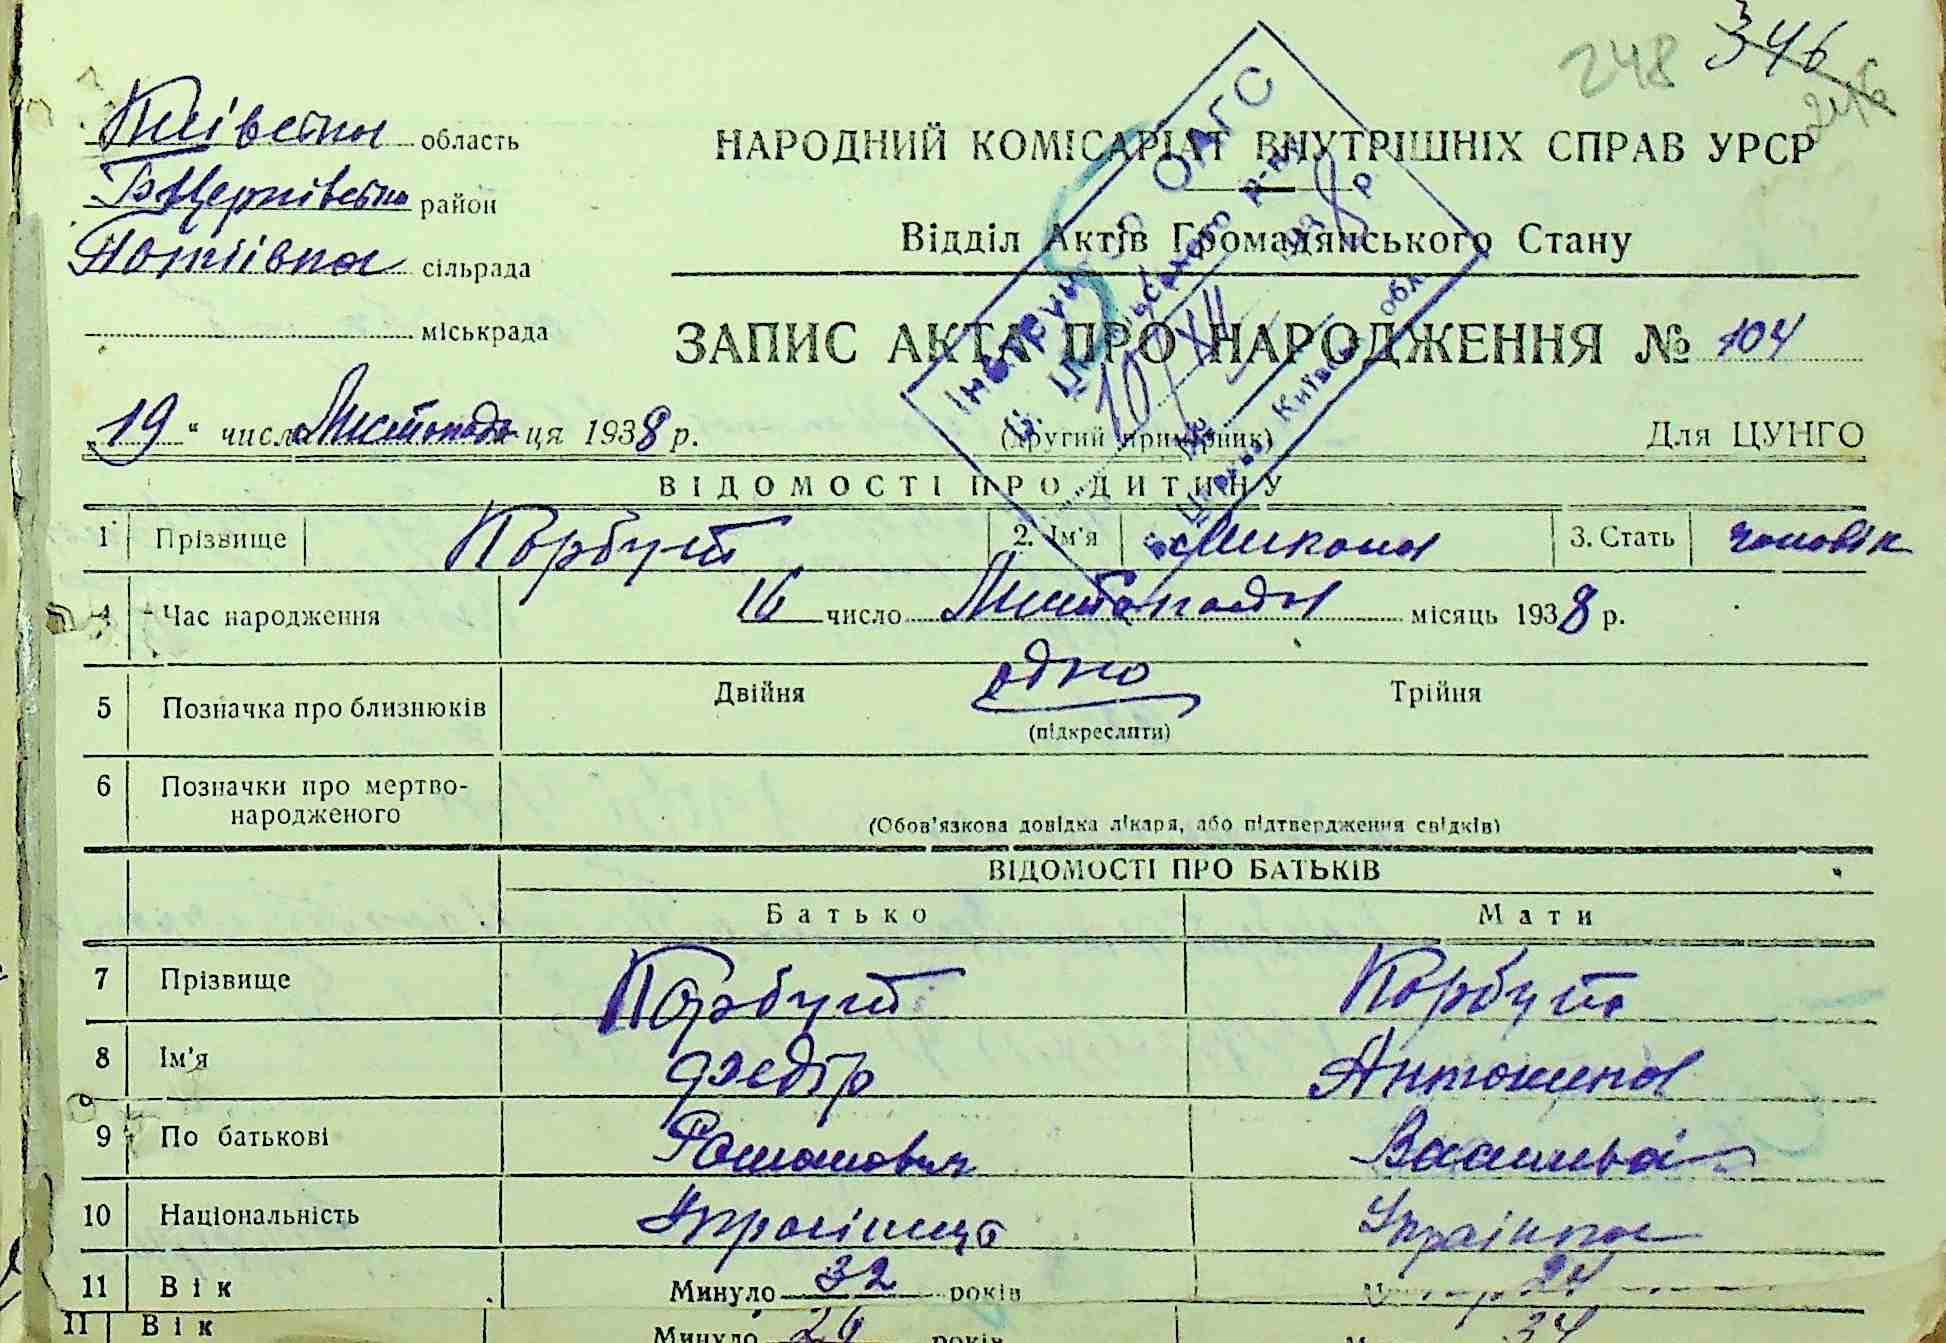 248 346 246
Київська область
Б Церківська район
сільрада
міськрада
НАРОДНИЙ КОМІСАРІАТ ВНУТРІШНІХ СПРАВ УРСР
Відділ Актів Громадянського Стану
Інструмто ОАГС
Б. Ц р-ну
10/XII 1938 р
м. Б Церква, Київськ. обл.
ЗАПИС АКТА ПРО НАРОДЖЕННЯ № 104
„19“ числа Листопада ця 1938 р.
(другий примірник)
Для ЦУНГО
ВІДОМОСТІ ПРО ДИТИНУ
1 Прізвище Корбут 2. Ім'я Микола 3. Стать чоловік
4 Час народження 16 число Листопада місяць 1938 р.
5 Позначка про близнюків Двійня одно Трійня
(підкреслити)
6 Позначки про мертво-
народженого
(Обов'язкова довідка лікаря, або підтвердження свідків)
ВІДОМОСТІ ПРО БАТЬКІВ
Батько Мати
7 Прізвище Корбут Корбут
8 Ім'я Федір Антонина
9 По батькові Романович
10 Національність Українець Українка
11 Вік Минуло 32 років 24
11 Вік Минуло 26 років 34